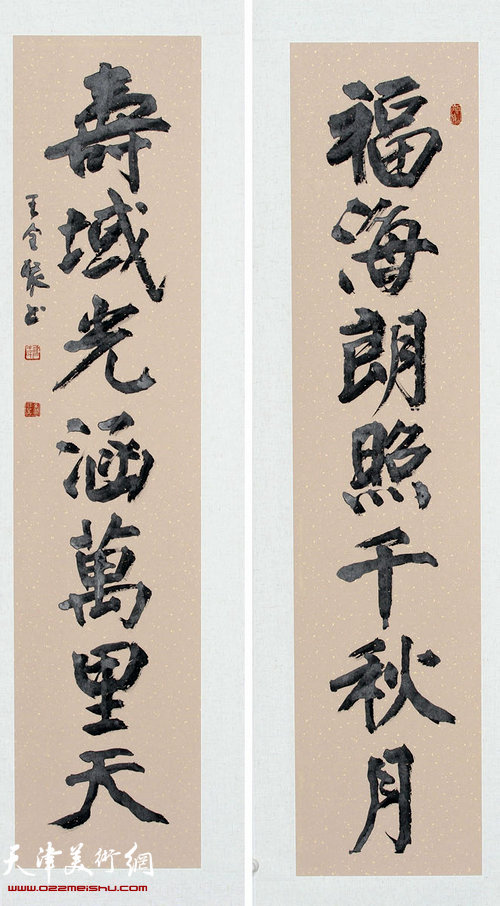 福海朗照千秋月
壽域光涵萬里天
王全聚书
天津美術網
www.022meishu.com